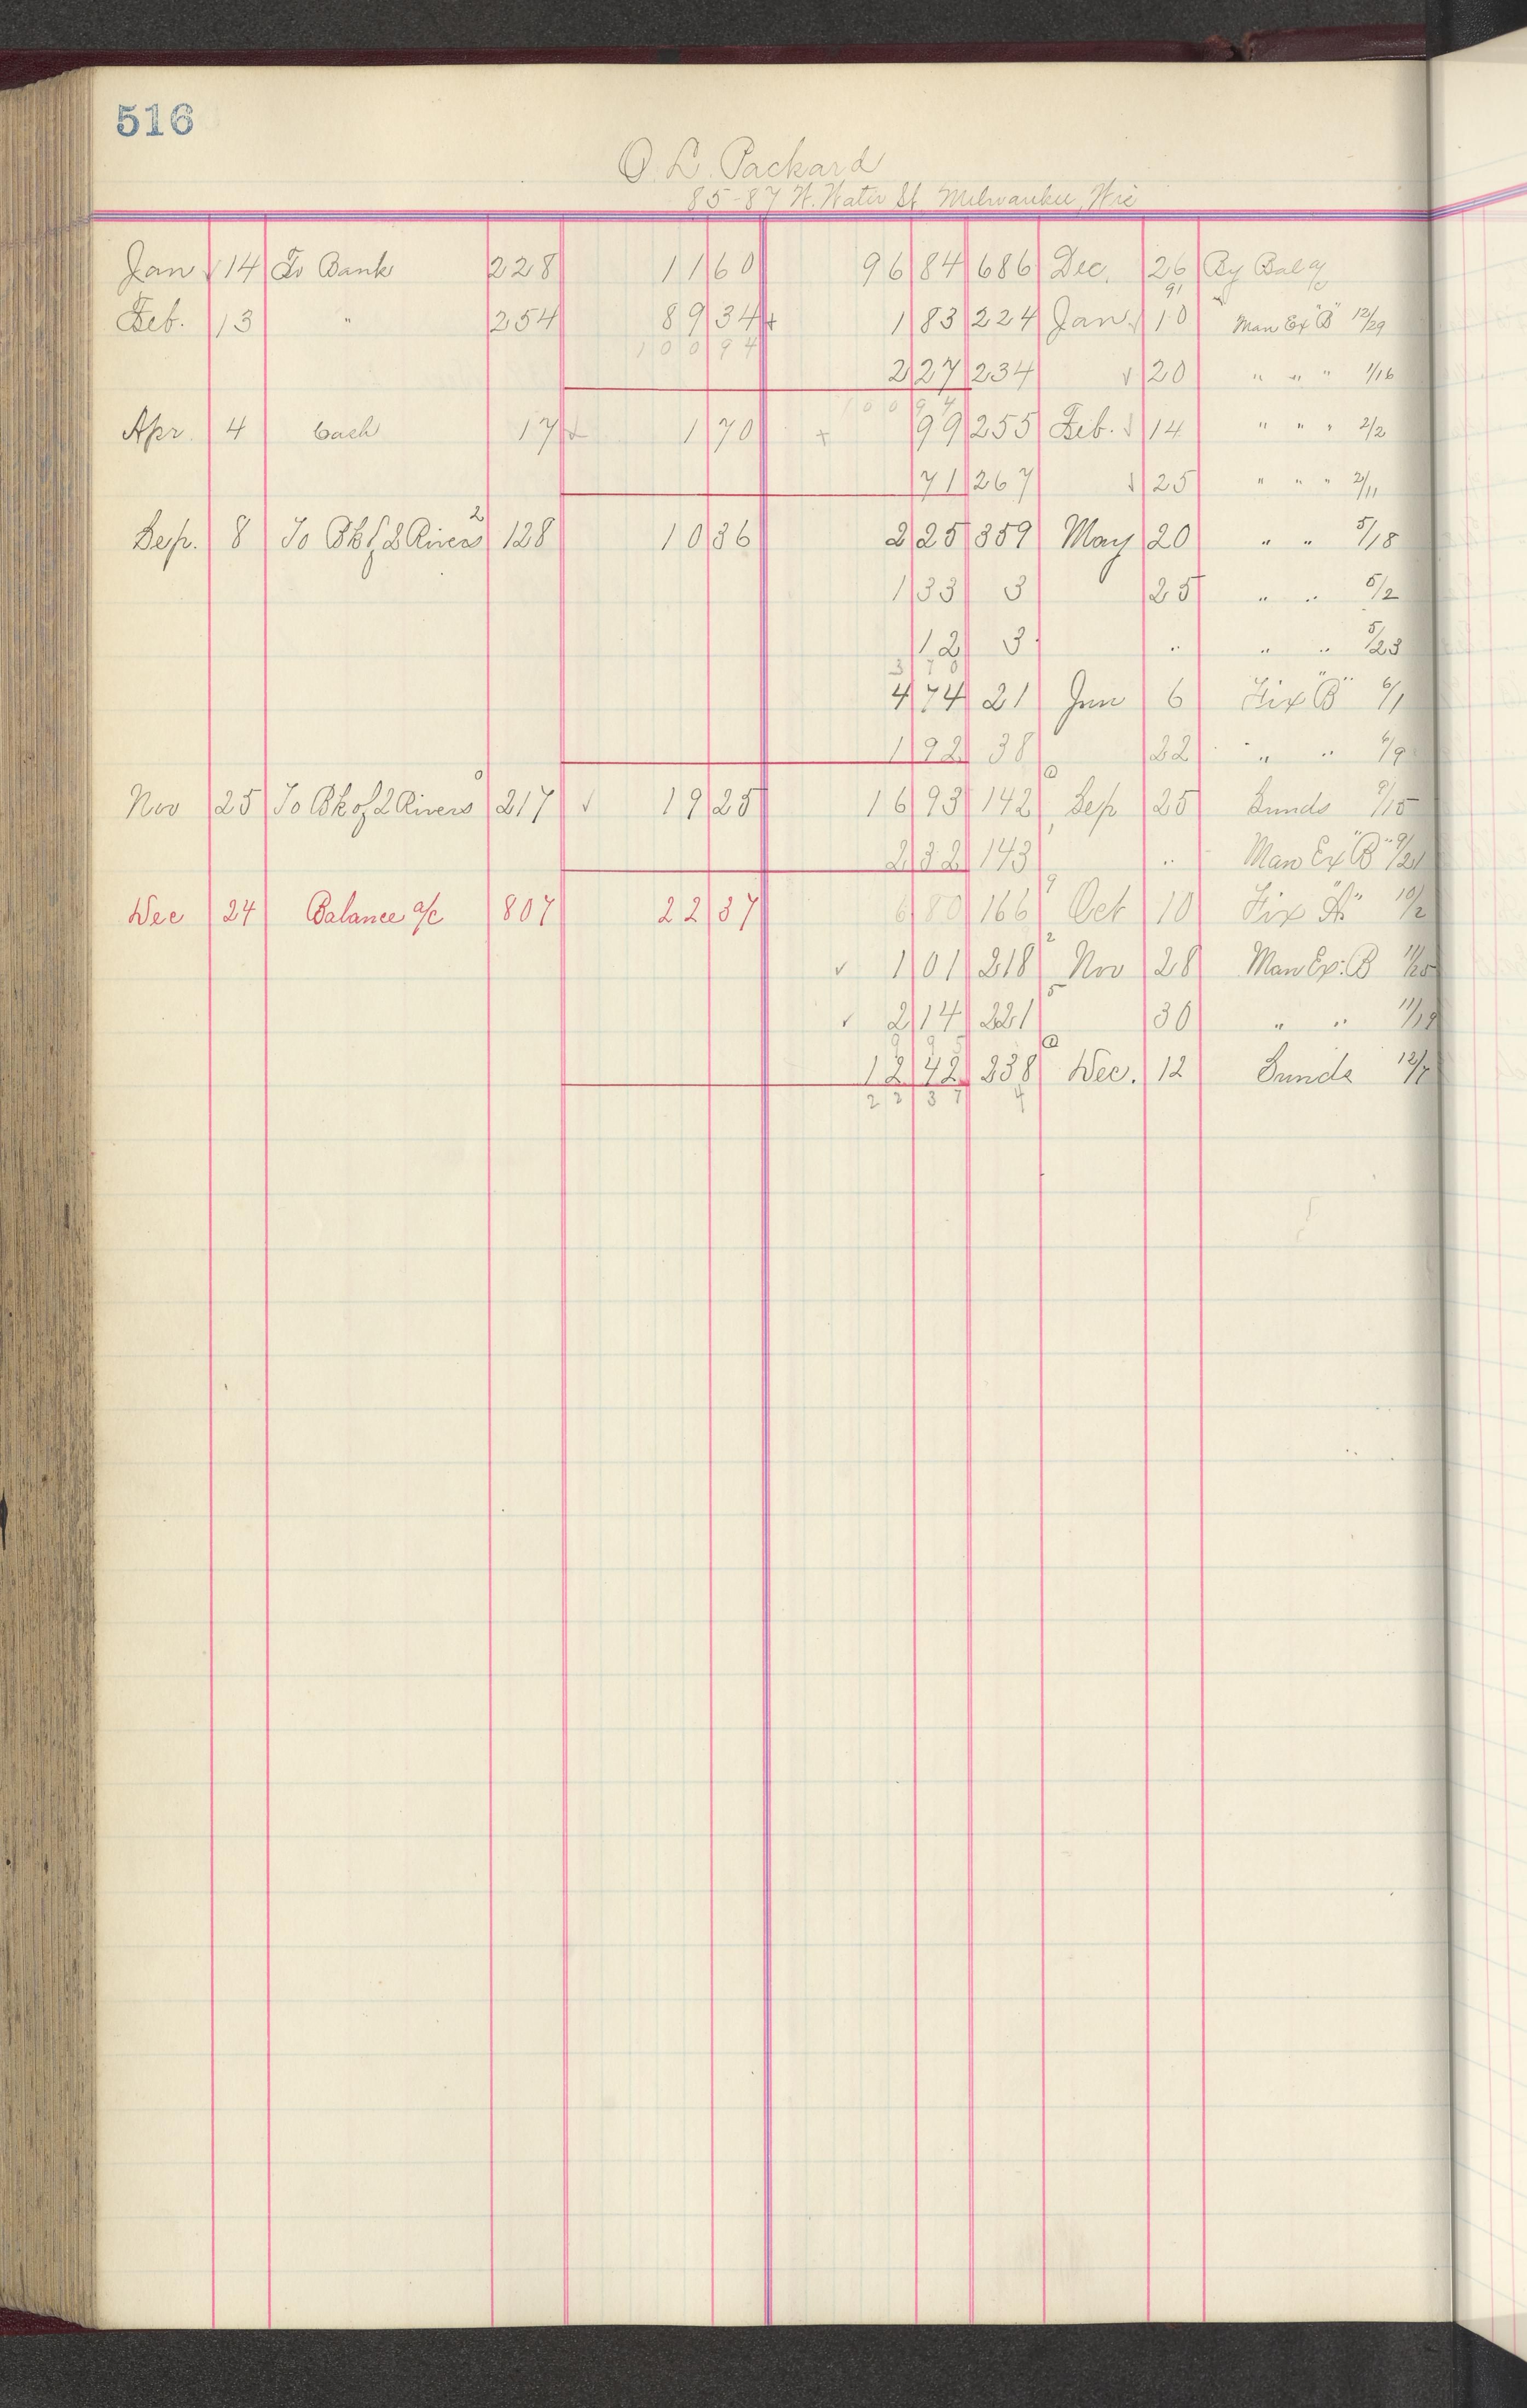 516
O. L. Packard
85-87 W. Water St. Milwaukee, Wis
Jan 14 To Bank 228 11 60 96 84 686 Dec. 26 By Bal %
91
Feb. 13 " 254 89 34 1 83 224 Jan. 10 Man Ex "B" 12/29
100 94
2 27 234 20 " " " 1/16
100 94
Apr. 4 Cash 17 1 70 99 255 Feb. 14 " " " 2/2
71 267 25 " " " 2/11
Sep. 8 To Bk of 2 Rivers 2 128 10 36 2 25 359 May 20 " " 5/18
1 33 3 25 " " 5/2
12 3 " " " 5/23
3 70
4 74 21 Jun 6 Fix "B" 6/1
1 92 38 22 " " 6/9
Nov 25 To Bk of 2 Rivers 0 217 √ 19 25 16 93 142 Sep 25 Sunds 9/15
2 32 143 " Man Ex "B" 9/21
Dec 24 Balance a/c 807 22 37 6 80 166 Oct 10 Fix "A" 10/2
√ 1 01 218 Nov 28 Man Ex. B 11/25
√ 2 14 221 30 " " 11/19
12 42 238 Dec. 12 Sunds 12/7
22 37 4